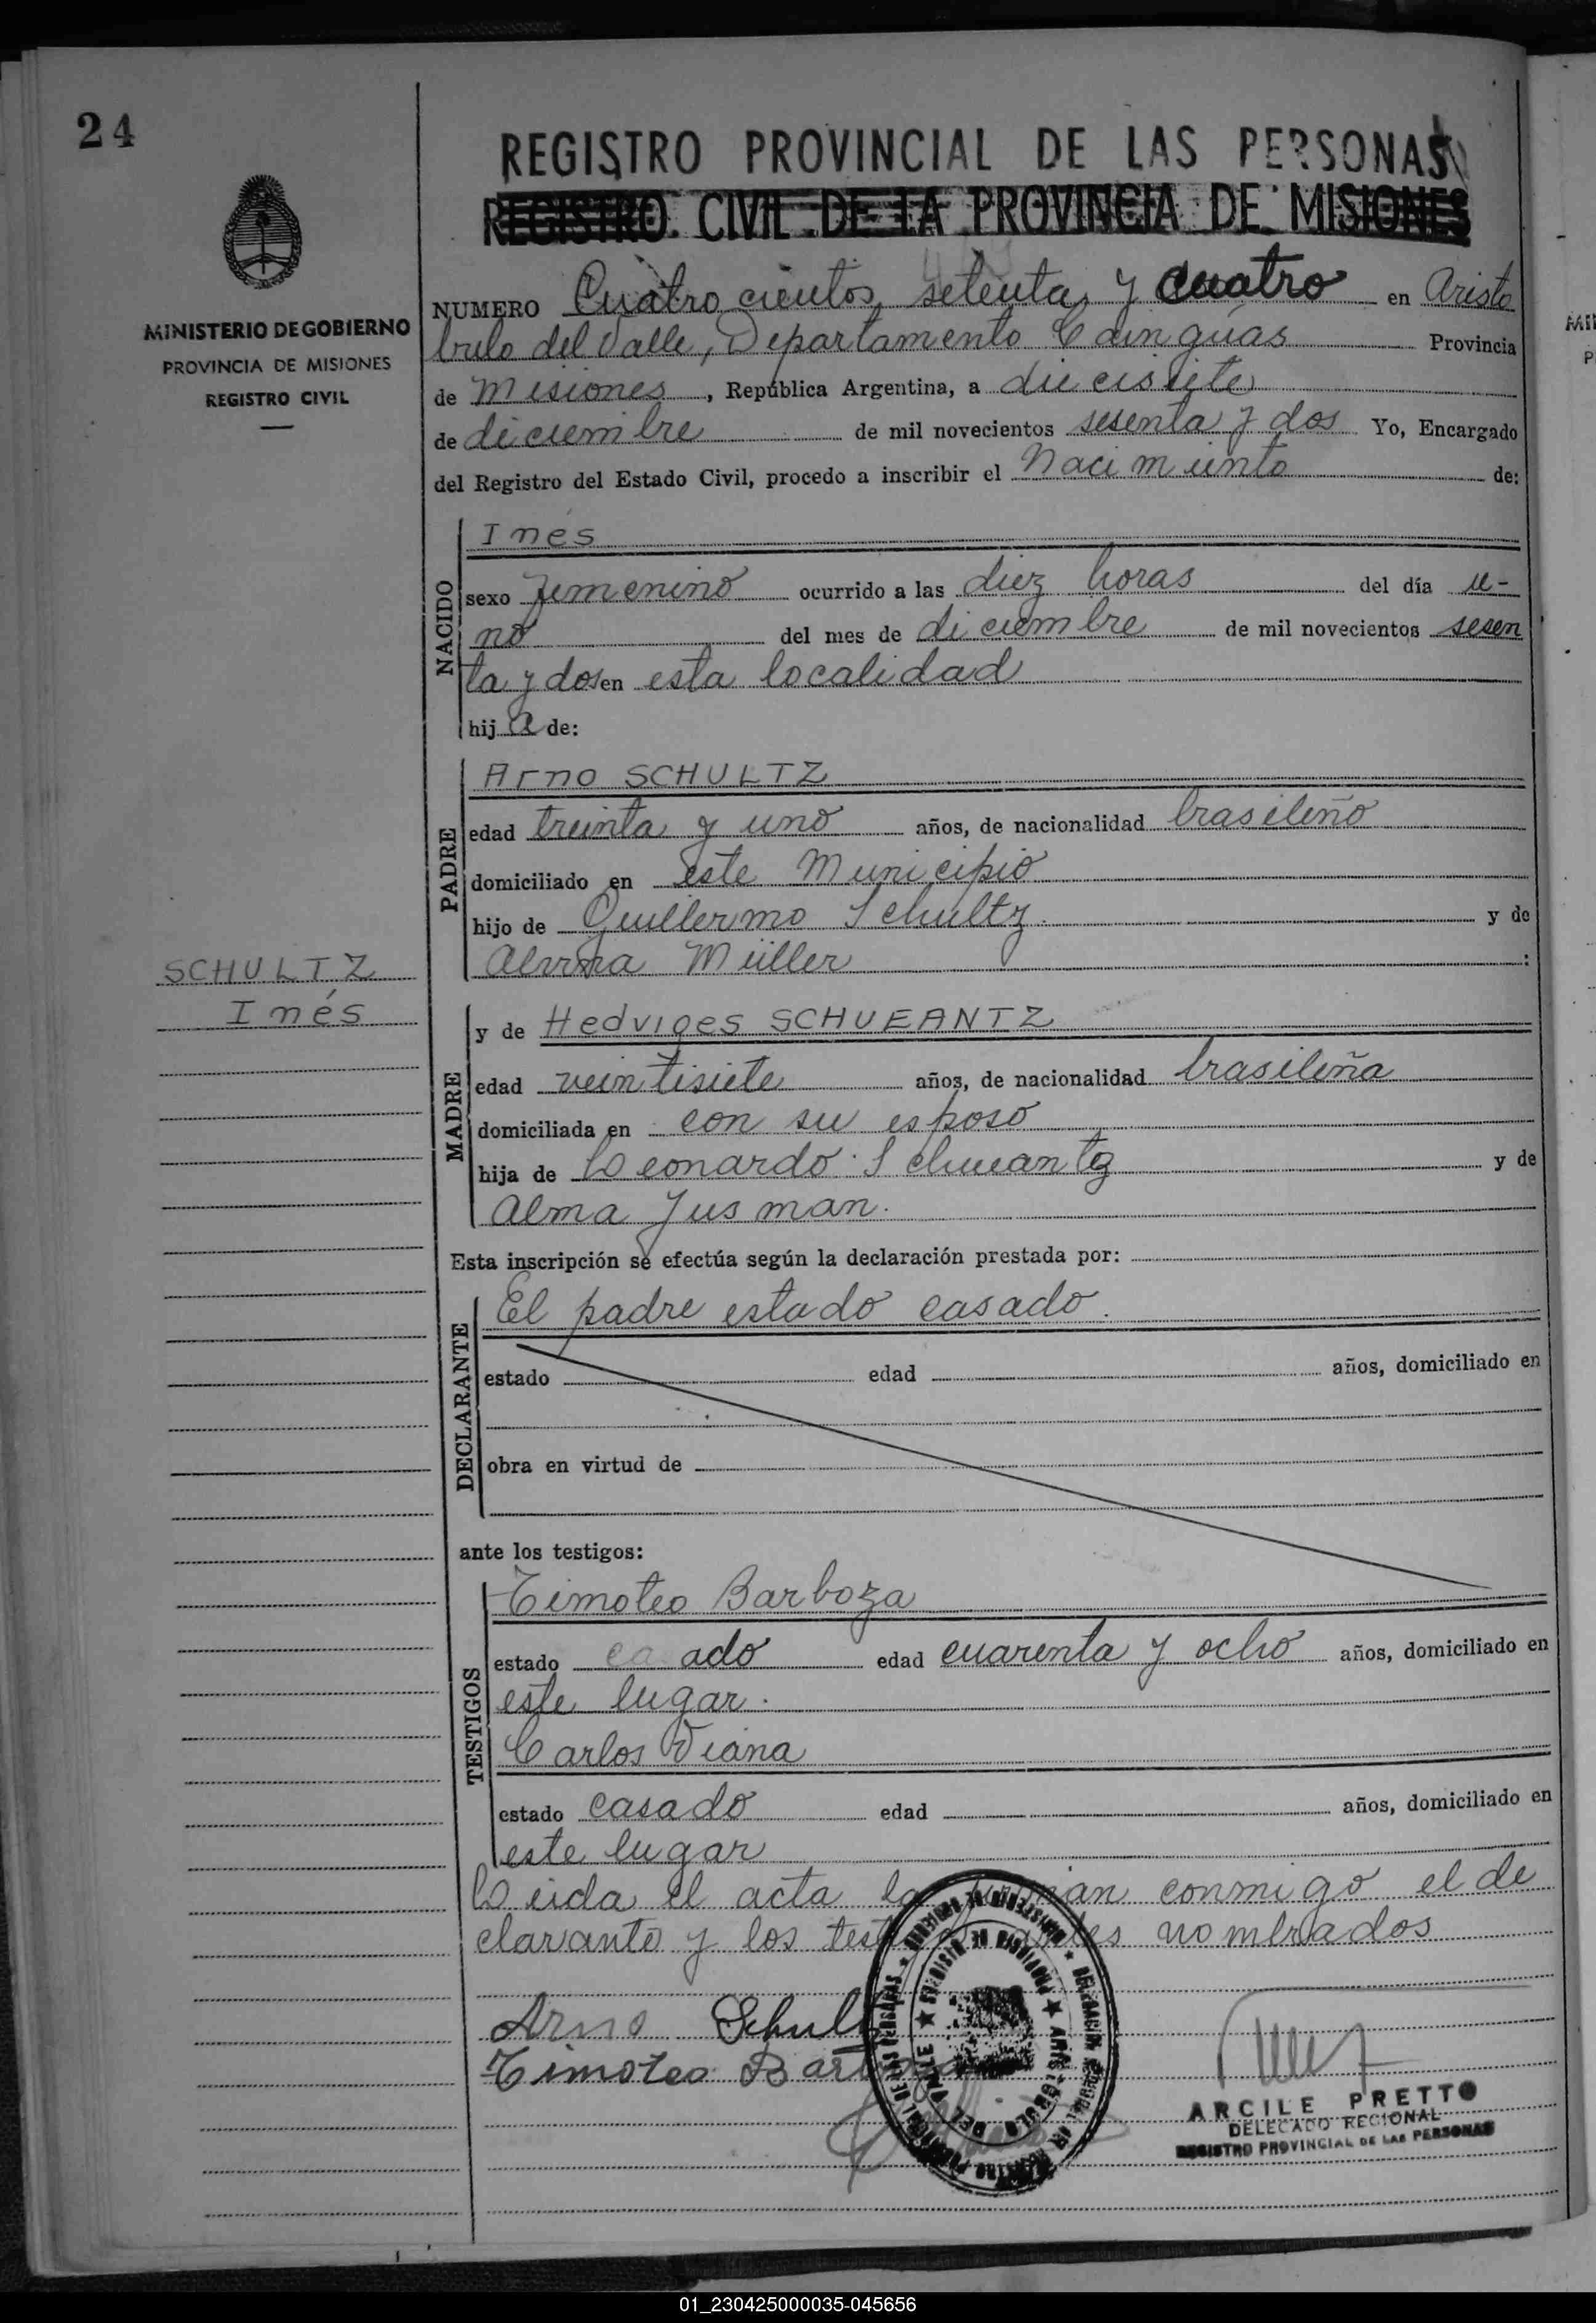 24
REGISTRO PROVINCIAL DE LAS PERSONAS
REGISTRO CIVIL DE LA PROVINCIA DE MISIONES
MINISTERIO DE GOBIERNO
PROVINCIA DE MISIONES
REGISTRO CIVIL
NUMERO Cuatro cientos setenta y cuatro en Aristo
bulo del Valle, Departamento Cainguás Provincia
de Misiones, República Argentina, a diecisiete
de diciembre de mil novecientos sesenta y dos Yo, Encargado
del Registro del Estado Civil, procedo a inscribir el Nacimiento de:
NACIDO
Inés
sexo femenino ocurrido a las diez horas del día u-
no del mes de diciembre de mil novecientos sesen
ta y dos en esta localidad
hija de:
PADRE
Arno SCHULTZ
edad treinta y uno años, de nacionalidad brasileño
domiciliado en este Municipio
hijo de Guillermo Schultz y de
Müller :
SCHULTZ
Inés
MADRE
y de Hedviges SCHUEANTZ
edad veintisiete años, de nacionalidad brasileña
domiciliada en con su esposo
hija de Leonardo Schueantz y de
Alma Jusman.
Esta inscripción se efectúa según la declaración prestada por:
DECLARANTE
El padre estado casado.
estado edad años, domiciliado en
obra en virtud de
ante los testigos:
TESTIGOS
Timoteo Barboza
estado casado edad cuarenta y ocho años, domiciliado en
este lugar.
Carlos Viana
estado casado edad años, domiciliado en
este lugar
Leida el acta la firman conmigo el de
clarante y los testigos antes nombrados
Arno Schultz
Timoteo Barboza
ARISTOBULO DEL VALLE
ARCILE PRETTO
DELEGADO REGIONAL
REGISTRO PROVINCIAL DE LAS PERSONAS
01_230425000035-045656